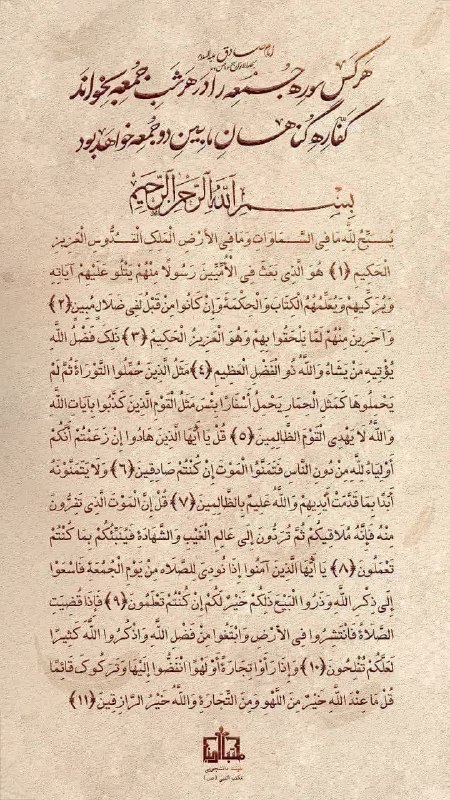 امام صادق علیه السلام
هرکس سوره جمعه را در هر شب جمعه بخواند
کفاره گناهان ما بین دو جمعه خواهد بود
بِسْمِ ٱللَّهِ ٱلرَّحْمَٰنِ ٱلرَّحِيمِ
يُسَبِّحُ لِلَّهِ مَا فِي السَّمَاوَاتِ وَمَا فِي الْأَرْضِ الْمَلِكِ الْقُدُّوسِ الْعَزِيزِ
الْحَكِيمِ ﴿١﴾ هُوَ الَّذِي بَعَثَ فِي الْأُمِّيِّينَ رَسُولًا مِنْهُمْ يَتْلُو عَلَيْهِمْ آيَاتِهِ
وَيُزَكِّيهِمْ وَيُعَلِّمُهُمُ الْكِتَابَ وَالْحِكْمَةَ وَإِنْ كَانُوا مِنْ قَبْلُ لَفِي ضَلَالٍ مُبِينٍ ﴿٢﴾
وَآخَرِينَ مِنْهُمْ لَمَّا يَلْحَقُوا بِهِمْ وَهُوَ الْعَزِيزُ الْحَكِيمُ ﴿٣﴾ ذَلِكَ فَضْلُ اللَّهِ
يُؤْتِيهِ مَنْ يَشَاءُ وَاللَّهُ ذُو الْفَضْلِ الْعَظِيمِ ﴿٤﴾ مَثَلُ الَّذِينَ حُمِّلُوا التَّوْرَاةَ ثُمَّ لَمْ
يَحْمِلُوهَا كَمَثَلِ الْحِمَارِ يَحْمِلُ أَسْفَارًا بِئْسَ مَثَلُ الْقَوْمِ الَّذِينَ كَذَّبُوا بِآيَاتِ اللَّهِ
وَاللَّهُ لَا يَهْدِي الْقَوْمَ الظَّالِمِينَ ﴿٥﴾ قُلْ يَا أَيُّهَا الَّذِينَ هَادُوا إِنْ زَعَمْتُمْ أَنَّكُمْ
أَوْلِيَاءُ لِلَّهِ مِنْ دُونِ النَّاسِ فَتَمَنَّوُا الْمَوْتَ إِنْ كُنْتُمْ صَادِقِينَ ﴿٦﴾ وَلَا يَتَمَنَّوْنَهُ
أَبَدًا بِمَا قَدَّمَتْ أَيْدِيهِمْ وَاللَّهُ عَلِيمٌ بِالظَّالِمِينَ ﴿٧﴾ قُلْ إِنَّ الْمَوْتَ الَّذِي تَفِرُّونَ
مِنْهُ فَإِنَّهُ مُلَاقِيكُمْ ثُمَّ تُرَدُّونَ إِلَى عَالِمِ الْغَيْبِ وَالشَّهَادَةِ فَيُنَبِّئُكُمْ بِمَا كُنْتُمْ
تَعْمَلُونَ ﴿٨﴾ يَا أَيُّهَا الَّذِينَ آمَنُوا إِذَا نُودِيَ لِلصَّلَاةِ مِنْ يَوْمِ الْجُمُعَةِ فَاسْعَوْا
إِلَى ذِكْرِ اللَّهِ وَذَرُوا الْبَيْعَ ذَلِكُمْ خَيْرٌ لَكُمْ إِنْ كُنْتُمْ تَعْلَمُونَ ﴿٩﴾ فَإِذَا قُضِيَتِ
الصَّلَاةُ فَانْتَشِرُوا فِي الْأَرْضِ وَابْتَغُوا مِنْ فَضْلِ اللَّهِ وَاذْكُرُوا اللَّهَ كَثِيرًا
لَعَلَّكُمْ تُفْلِحُونَ ﴿١٠﴾ وَإِذَا رَأَوْا تِجَارَةً أَوْ لَهْوًا انْفَضُّوا إِلَيْهَا وَتَرَكُوكَ قَائِمًا
قُلْ مَا عِنْدَ اللَّهِ خَيْرٌ مِنَ اللَّهْوِ وَمِنَ التِّجَارَةِ وَاللَّهُ خَيْرُ الرَّازِقِينَ ﴿١١﴾
مکتب النبی (ص)